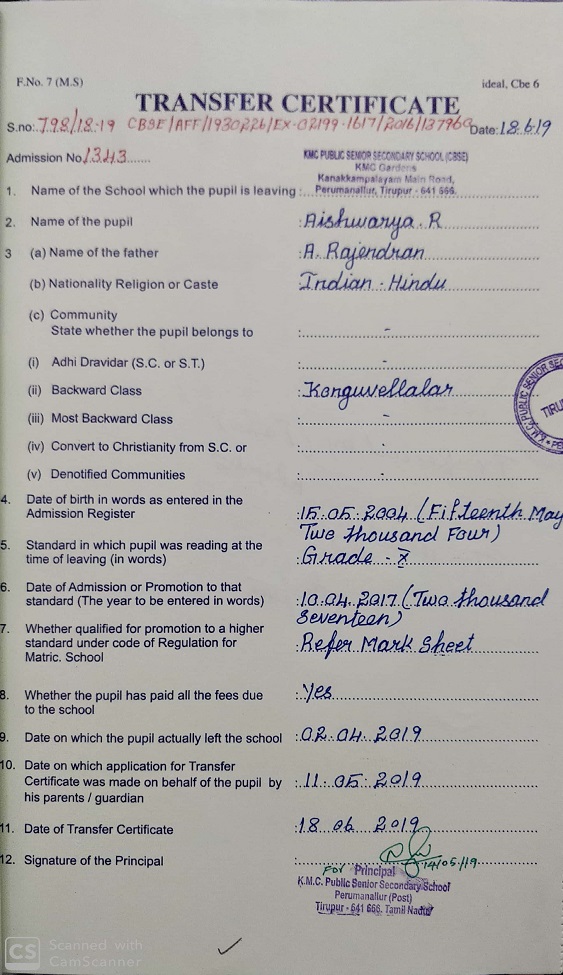 F.No. 7 (M.S)
ideal, Cbe 6
TRANSFER CERTIFICATE
S.no: 798/18-19 CBSE/AFF/1930226/EX-02199-1617/2016/137960 Date: 18.6.19
Admission No. 1343
KMC PUBLIC SENIOR SECONDARY SCHOOL (CBSE)
KMC Gardens
Kanakkampalayam Main Road,
1. Name of the School which the pupil is leaving : Perumanallur, Tirupur - 641 666.
2. Name of the pupil : Aishwarya. R
3 (a) Name of the father : A. Rajendran
(b) Nationality Religion or Caste : Indian - Hindu
(c) Community
State whether the pupil belongs to : -
(i) Adhi Dravidar (S.C. or S.T.) : -
(ii) Backward Class : Konguvellalar
(iii) Most Backward Class : -
(iv) Convert to Christianity from S.C. or : -
(v) Denotified Communities : -
K.M.C. PUBLIC SENIOR SEC
TIRU
4. Date of birth in words as entered in the
Admission Register : 15.05.2004 (Fifteenth May
Two thousand Four)
5. Standard in which pupil was reading at the
time of leaving (in words) : Grade - X
6. Date of Admission or Promotion to that
standard (The year to be entered in words) : 10.04.2017 (Two thousand
seventeen)
7. Whether qualified for promotion to a higher
standard under code of Regulation for : Refer Mark Sheet
Matric. School
8. Whether the pupil has paid all the fees due : Yes
to the school
9. Date on which the pupil actually left the school : 02.04.2019
10. Date on which application for Transfer
Certificate was made on behalf of the pupil by : 11.05.2019
his parents / guardian
11. Date of Transfer Certificate : 18 06 2019
12. Signature of the Principal : 14/05/19
For Principal
K.M.C. Public Senior Secondary School
Perumanallur (Post)
Tirupur - 641 666. Tamil Nadu
CS Scanned with
CamScanner